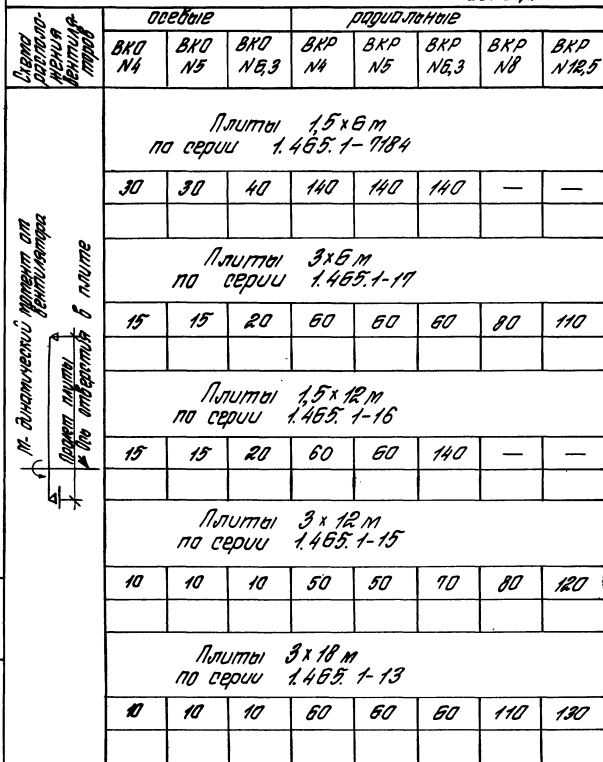 Схема располо-жения вентиля-торов
осевые радиальные
ВКО N4 ВКО N5 ВКО N6,3 ВКР N4 ВКР N5 ВКР N6,3 ВКР N8 ВКР N12,5
М- динамический момент от вентилятора
Пролет плиты
Ось отверстия в плите
Плиты 1,5×6 м
по серии 1.465.1-7184
30 30 40 140 140 140 — —
Плиты 3×6 м
по серии 1.465.1-17
15 15 20 60 60 60 80 110
Плиты 1,5×12 м
по серии 1.465.1-16
15 15 20 60 60 140 — —
Плиты 3×12 м
по серии 1.465.1-15
10 10 10 50 50 70 80 120
Плиты 3×18 м
по серии 1.465.1-13
10 10 10 60 60 60 110 130